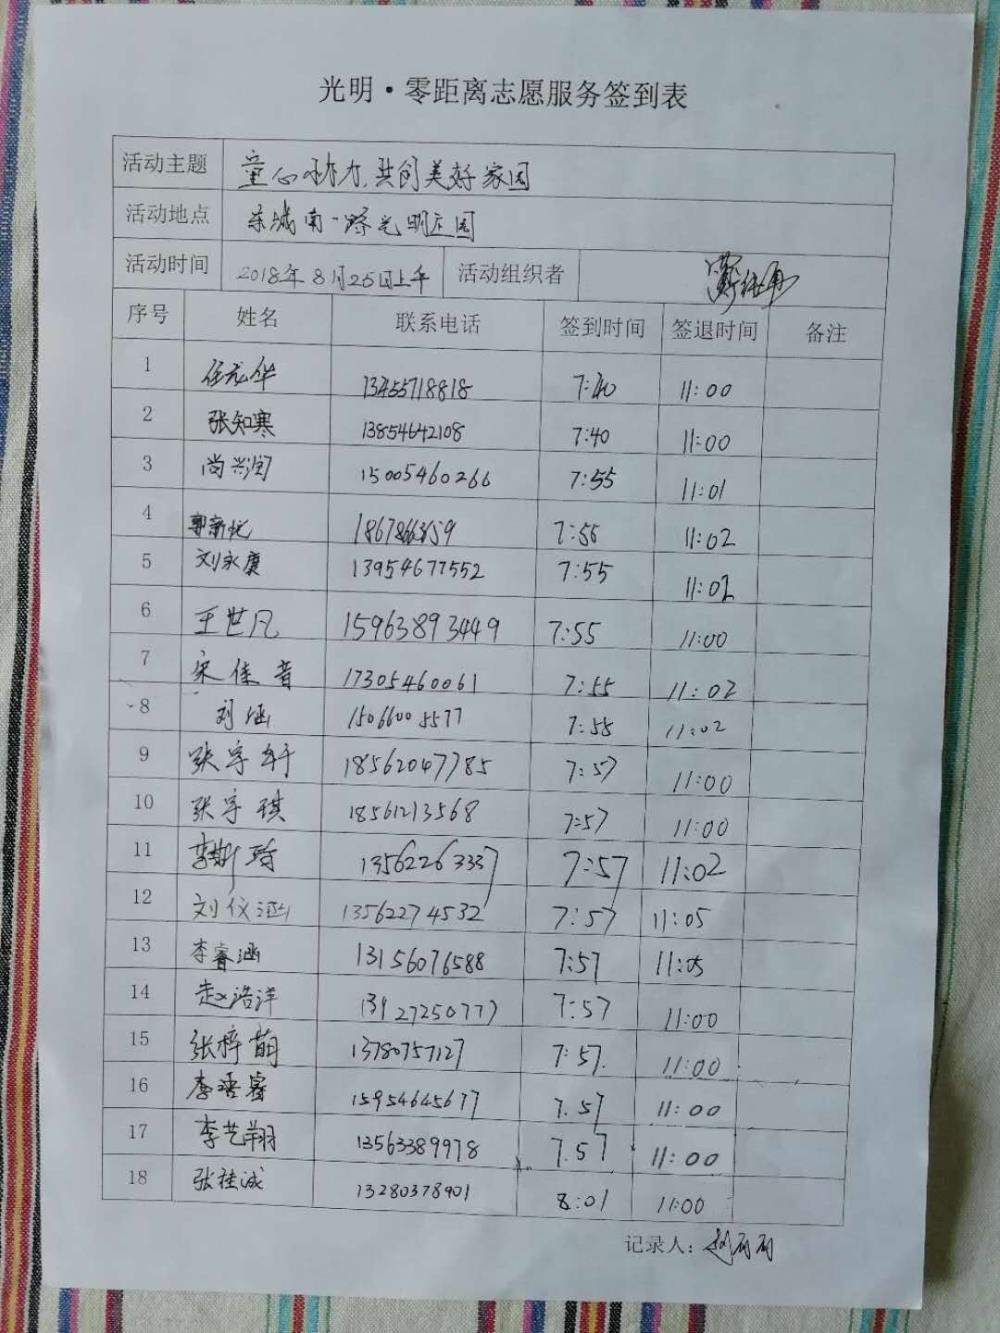 光明·零距离志愿服务签到表
活动主题 童心协力,共创美好家园
活动地点 东城南一路光明庄园
活动时间 2018年8月25日上午 活动组织者
序号 姓名 联系电话 签到时间 签退时间 备注
1 任龙华 13455718818 7:40 11:00
2 张知寒 13854642108 7:40 11:00
3 尚兴润 15005460266 7:55 11:01
4 7:55 11:02
5 刘永康 13954677552 7:55 11:02
6 王世凡 15963893449 7:55 11:00
7 宋佳音 17305460061 7:55 11:02
8 刘涵 15066005577 7:55 11:02
9 张宇轩 18562047785 7:57 11:00
10 张宇琪 18561213568 7:57 11:00
11 13562263337 7:57 11:02
12 刘仪涵 13562274532 7:57 11:05
13 李睿涵 13156076588 7:57 11:05
14 赵浩洋 13127250777 7:57 11:00
15 张梓萌 13780757127 7:57. 11:00
16 李语睿 15954645677 7.57 11:00
17 李艺翔 13563389978 7.57 11:00
18 张桂诚 13280378901 8:01 11:00
记录人: 赵丽丽